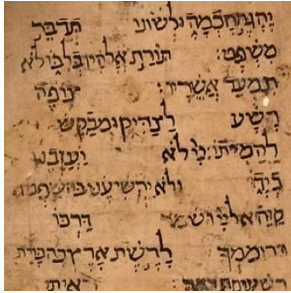 יֶהְגֶּה חָכְמָה וּלְשׁוֹנוֹ תְּדַבֵּר
מִשְׁפָּט: תּוֹרַת אֱלֹהָיו בְּלִבּוֹ לֹא
תִמְעַד אֲשֻׁרָיו: צוֹפֶה
רָשָׁע לַצַּדִּיק וּמְבַקֵּשׁ
לַהֲמִיתוֹ: לֹא יַעַזְבֶנּוּ
בְיָדוֹ וְלֹא יַרְשִׁיעֶנּוּ בְּהִשָּׁפְטוֹ
קַוֵּה אֶל וּשְׁמֹר דַּרְכּוֹ
וִירוֹמִמְךָ לָרֶשֶׁת אָרֶץ בְּהִכָּרֵת
רְשָׁעִים תִּרְאֶה: רָאִיתִי